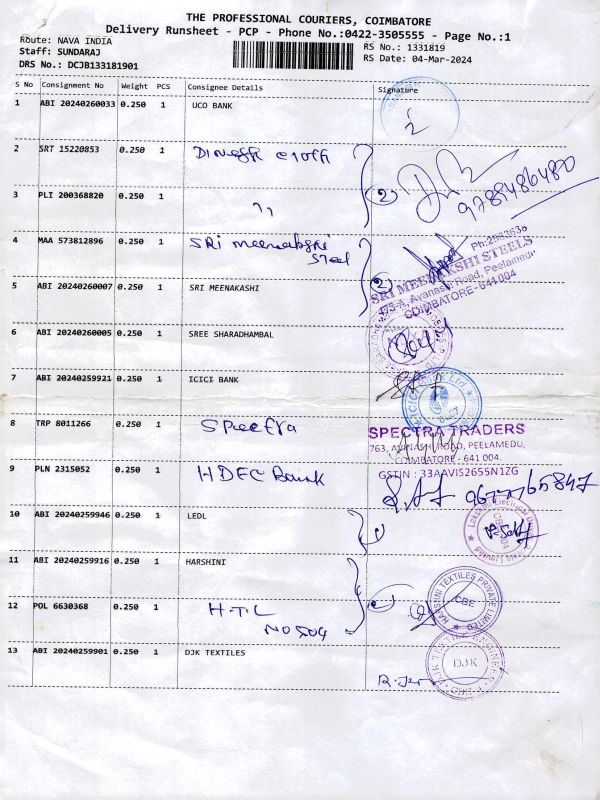 THE PROFESSIONAL COURIERS, COIMBATORE
Delivery Runsheet - PCP - Phone No.:0422-3505555 - Page No.:1
Route: NAVA INDIA
RS No.: 1331819
Staff: SUNDARAJ
RS Date: 04-Mar-2024
DRS No.: DCJB133181901
S No Consignment No Weight PCS Consignee Details Signature
1 ABI 20240260033 0.250 1 UCO BANK
2 SRT 15220853 0.250 1
2 9789486480
3 PLI 200368820 0.250 1 ,,
4 MAA 573812896 0.250 1 SRI meenakshi
Steel
2
Ph:2563636
SRI MEENAKSHI STEELS
473-A, Avanashi Road, Peelamedu
COIMBATORE-641 004
5 ABI 20240260007 0.250 1 SRI MEENAKSHI
6 ABI 20240260005 0.250 1 SREE SHARADHAMBAL
7 ABI 20240259921 0.250 1 ICICI BANK
ICICI Bank Ltd.
8 TRP 8011266 0.250 1 Spectra
SPECTRA TRADERS
763, AVINASHI ROAD, PEELAMEDU,
COIMBATORE - 641 004.
GSTIN : 33AAVIS2655N1ZG
9 PLN 2315052 0.250 1 HDFC Bank
9677765847
10 ABI 20240259946 0.250 1 LEDL
11 ABI 20240259916 0.250 1 HARSHINI
HARSHNI TEXTILES PRIVATE LIMITED
CBE
12 POL 6630368 0.250 1 H.T.L
NO 504
13 ABI 20240259901 0.250 1 DJK TEXTILES
DJK